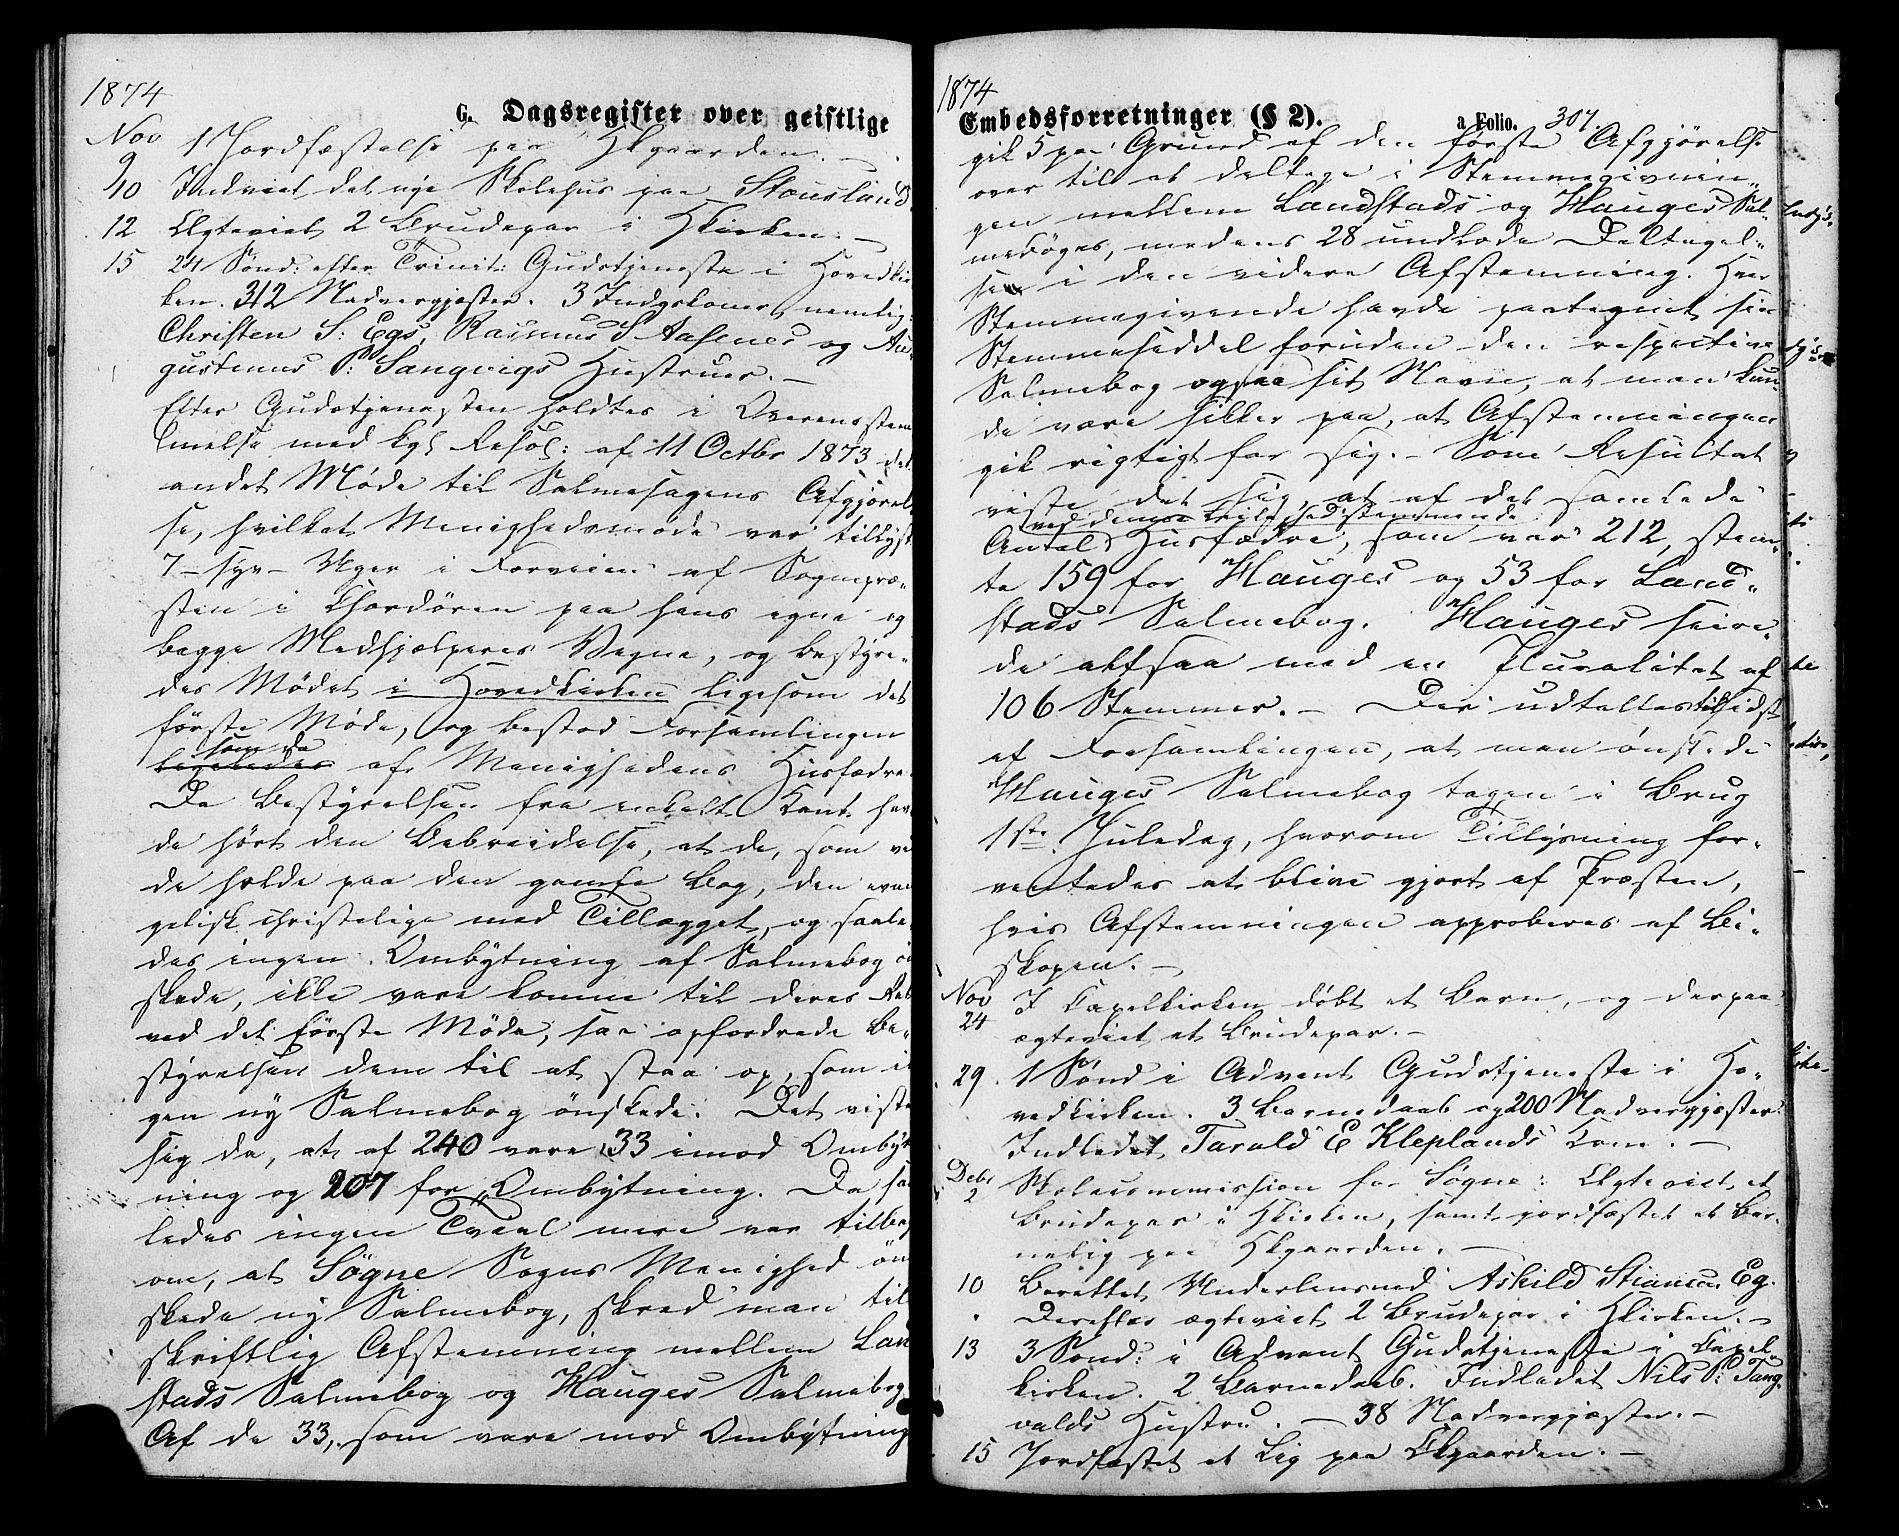 1874
G. Dagsregister over geistlige
Nov
9 1 Jordfæstelse paa Hkgaarden. –
10 Indviet det nye Skolehus paa Stousland
12 Ægteviet 2 Brudepar i Hkirken. –
15 24 Sønd: efter Trinit: Gudstjeneste i Hovedkir
ken. 312 Nadvergjæster. 3 Indgskoner, nemlig:
Christen S: Egs, Rasmus S Aasenes og Au-
gustinus P: Langvigs Hustruer. –
Efter Gudstjenesten holdtes i Overensstem
melse med kgl Resol: af 11 Octbr 1873 det
andet Møde til Salmesagens Afgjørel
se, hvilket Menighedsmøde var tillyst
7 – syv – Uger i Forveien af Sognepræ-
sten i Chordøren paa hans egne og
begge Medhjælperes Vegne, og bestyre-
des Mødet i Hovedkirken ligesom det
første Møde, og bestod Forsamlingen
som da
ligeledes af Menighedens Husfædre.
Da Bestyrelsen fra enkelt Kant hav
de hørt den Bebreidelse, at de, som vil
de holde paa den gamle Bog, den evan
gelisk christelige med Tillægget, og saale
des ingen Ombytning af Salmebog øn
skede, ikke vare komne til deres Ret
ved det første Møde, saa opfordrede Be-
styrelsen dem til at staa op, som in
gen ny Salmebog ønskede. Det viste
sig da, at af 240 vare 33 imod Ombyt
ning og 207 for Ombytning. Da saa
ledes ingen Tvivl mere var tilbage
om, at Søgne Sogns Menighed øn
skede ny Salmebog, skred man til
skriftlig Afstemning mellem Land
stads Salmebog og Hauges Salmebog
Af de 33, som vare mod Ombytning
1874
Embedsforretninger (§ 2).
a Folio. 307.
gik 5 paa Grund af den første Afgjørelse
over til at deltage i Stemmegivnin-
gen mellem Landstads og Hauges Sal-
mebøger, medens 28 undlode Deltagel-
sen i den videre Afstemning. Hver
Stemmegivende havde paategnet sin
Stemmeseddel foruden den respective
Salmebog ogsaa sit Navn, at man kun
de være sikker paa, at Afstemningen
gik rigtigt for sig. – Som Resultat
viste det sig, at af det samlede
ved denne Leilighed stemmende
Antal Husfædre, som var 212, stem-
te 159 for Hauges og 53 for Land-
stads Salmebog. Hauges seire-
de altsaa med en Pluralitet af
106 Stemmer. – Der udtaltes tilsidst
af Forsamlingen, at man ønskede
Hauges Salmebog tagen i Brug
1ste Juledag, hvorom Tillysning for-
ventedes at blive gjort af Præsten,
hvis Afstemningen approberes af Bi-
skopen. –
Nov
24 I Capelkirken døbt et Barn, og derpaa
ægteviet et Brudepar. –
29. 1 Sønd i Advent Gudstjeneste i Ho-
vedkirken. 3 Barnedaab og 200 Nadvergjæster.
Indledet Tarald E Kleplands Kone. –
Decbr
2 Skolecommission for Søgne: Ægteviet et
Brudepar i Hkirken, samt jordfæstet et Bar-
nelig paa Hkgaarden. –
10 Berettet Underlensmd Askild Stiansen Eg.
" Derefter ægteviet 2 Brudepar i Hkirken. –
13 3 Sønd: i Advent Gudstjeneste i Capel-
kirken. 2 Barnedaab. Indledet Nils P: Tang-
valds Hustru. – 38 Nadvergjæster. –
15 Jordfæstet et Lig paa Ckgaarden. –